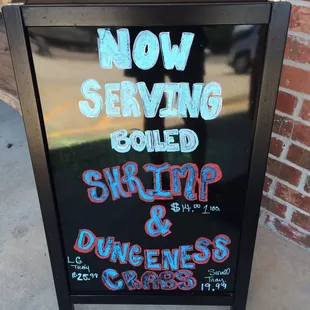 NOW
SERVING
BOILED
SHRIMP
$14.00 1 LBS.
&
DUNGENESS
CRABS
LG
Tray
$25.99
Small
Tray
19.99